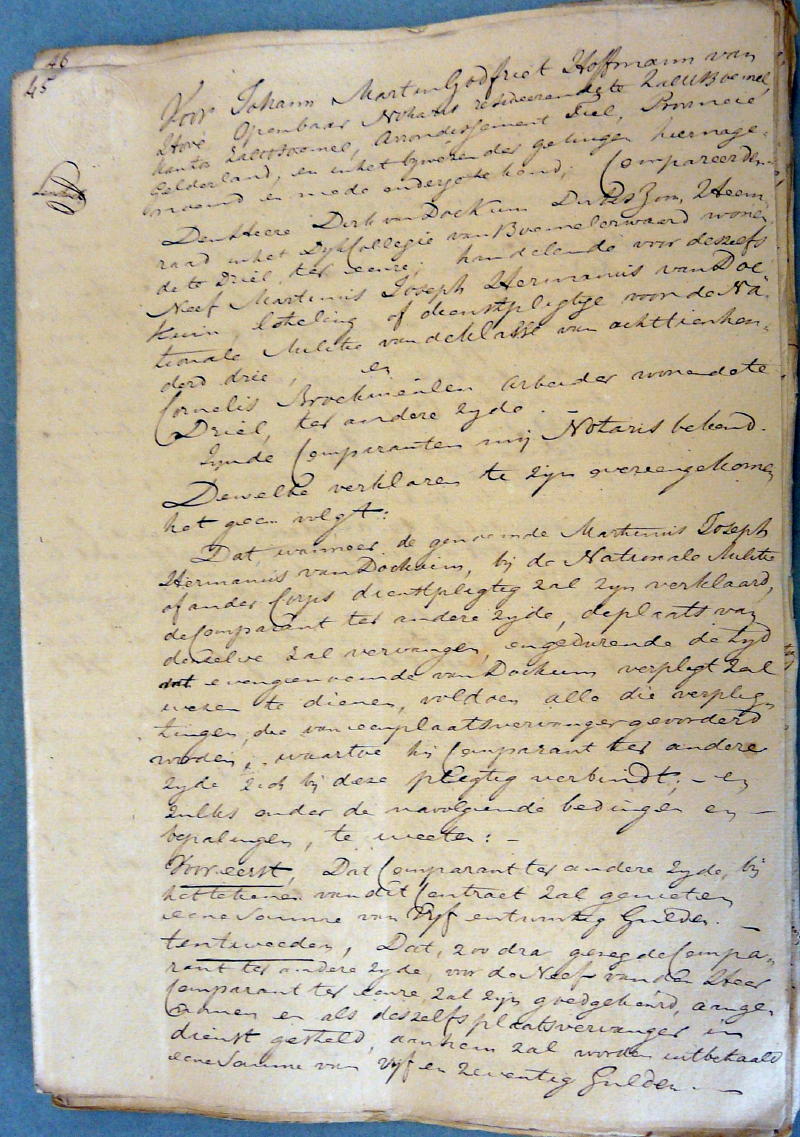 46
45
Voor Johann Martin Godfriet Hoffmann van
Hove Openbaar Notaris resideerende te Zalt Boemel,
Kanton Zaltboemel, Arrondissement Tiel, Provincie
Gelderland, en in het bijwezen der getuigen hierna ge-
noemd en mede ondergetekend; Compareerden,
Den Heere Dirk van Dockum Dirks Zoon, Heem
raad in het Dyk Collegie van Boemelerwaard wonen
de te Driel, ter eenre, handelende voor deszelfs
Neef Martinus Joseph Hermanus van Doc
kum, loteling of dienstpligtige voor de Na-
tionale Militie van de klasse van achttienhon-
derd drie, en
Cornelis Broekmeulen Arbeider wonende te
Driel, ter andere zyde.
Zynde Comparanten mij Notaris bekend.
Dewelke verklaren te zyn overeengekomen
het geen volgt:
Dat, wanneer de genoemde Martinus Joseph
Hermanus van Dockum, bij de Nationale Militie
of ander Corps dienstpligtig zal zyn verklaard,
de Comparant ter andere zyde, de plaats van
denzelve zal vervangen, en gedurende de tyd
evengenoemde van Dockum verpligt zal
wezen te dienen, voldoen alle die verplig
tingen, die van een plaatsvervanger gevorderd
worden, waartoe hij Comparant ter andere
zyde zich bij deze plegtig verbindt; – en
zulks onder de navolgende bedingen en –
bepalingen, te weeten: –
Voor eerst, Dat Comparant ter andere zyde, bij
het tekenen van dit Contract zal genieten
eene Somme van Vyf en twintig Gulden. –
ten tweeden, Dat, zoodra gezegde Compa-
rant ter andere zyde, voor de Neef van den Heer
Comparant ter eenre, zal zyn goedgekeurd, aange
nomen en als deszelfs plaatsvervanger in
dienst gesteld, aan hem zal worden uitbetaald
eene Somme van vyf en zeventig Gulden. –